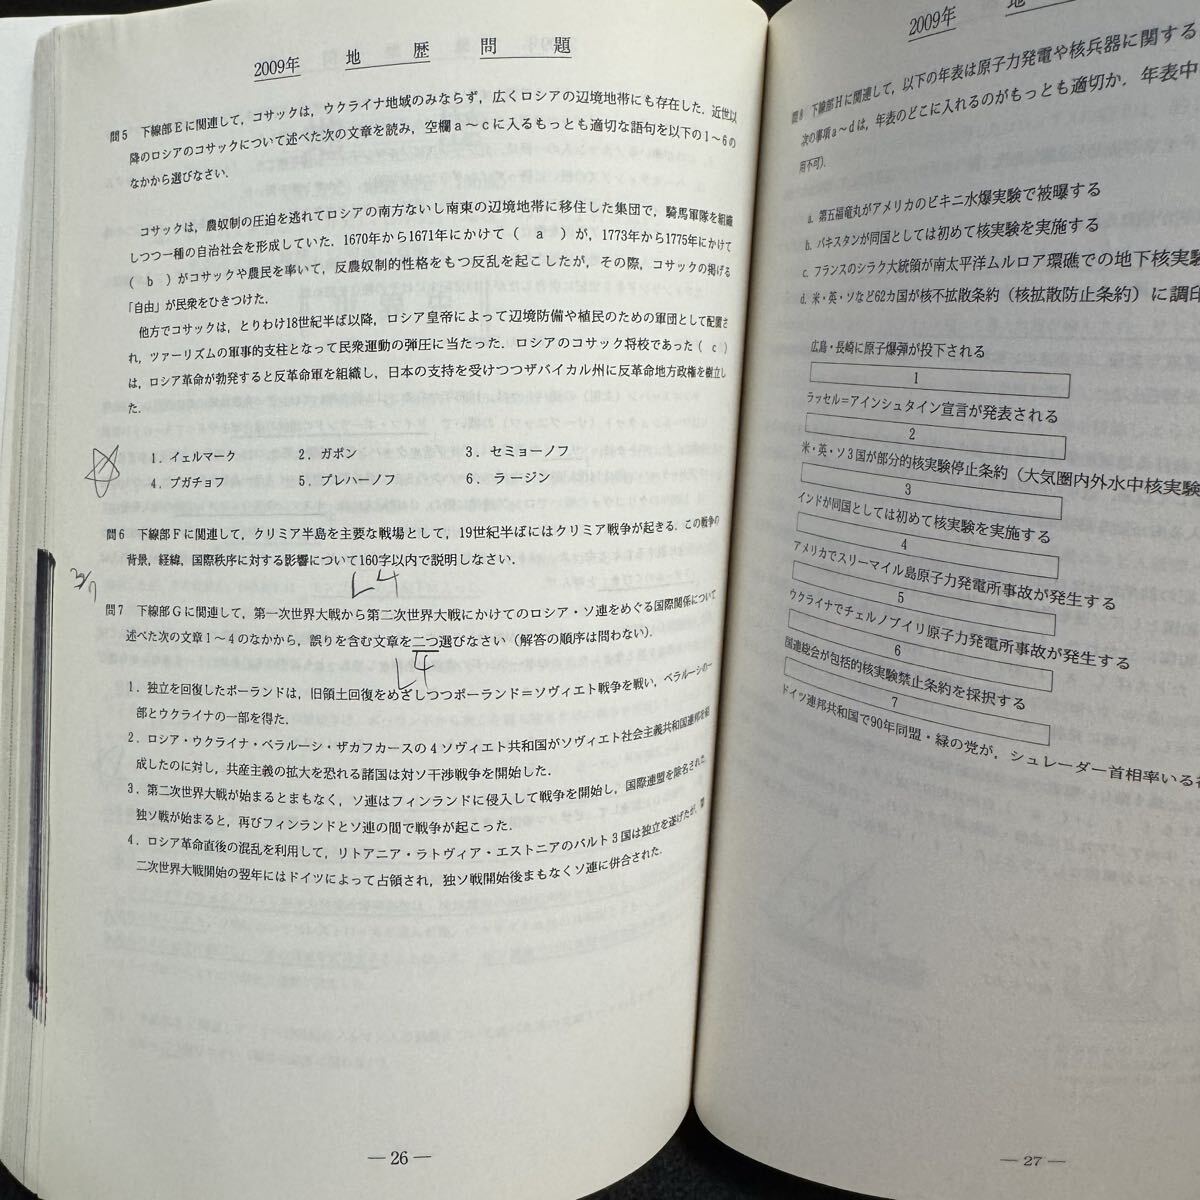 2009年 地歴問題
問5 下線部Eに関連して,コサックは,ウクライナ地域のみならず,広くロシアの辺境地帯にも存在した.近世以
降のロシアのコサックについて述べた次の文章を読み,空欄a～cに入るもっとも適切な語句を以下の1～6の
なかから選びなさい.
コサックは,農奴制の圧迫を逃れてロシアの南方ないし南東の辺境地帯に移住した集団で,騎馬軍隊を組織
しつつ一種の自治社会を形成していた.1670年から1671年にかけて( a )が,1773年から1775年にかけて
( b )がコサックや農民を率いて,反農奴制的性格をもつ反乱を起こしたが,その際,コサックの掲げる
「自由」が民衆をひきつけた.
他方でコサックは,とりわけ18世紀半ば以降,ロシア皇帝によって辺境防備や植民のための軍団として配置さ
れ,ツァーリズムの軍事的支柱となって民衆運動の弾圧に当たった.ロシアのコサック将校であった( c )
は,ロシア革命が勃発すると反革命軍を組織し,日本の支持を受けつつザバイカル州に反革命地方政権を樹立し
た.
1.イェルマーク 2.ガポン 3.セミョーノフ
4.プガチョフ 5.プレハーノフ 6.ラージン
問6 下線部Fに関連して,クリミア半島を主要な戦場として,19世紀半ばにはクリミア戦争が起きる.この戦争の
背景,経緯,国際秩序に対する影響について160字以内で説明しなさい.
L4
問7 下線部Gに関連して,第一次世界大戦から第二次世界大戦にかけてのロシア・ソ連をめぐる国際関係について
述べた次の文章1～4のなかから,誤りを含む文章を二つ選びなさい(解答の順序は問わない).
L4
1.独立を回復したポーランドは,旧領土回復をめざしつつポーランド=ソヴィエト戦争を戦い,ベラルーシの一
部とウクライナの一部を得た.
2.ロシア・ウクライナ・ベラルーシ・ザカフカースの4ソヴィエト共和国がソヴィエト社会主義共和国連邦を結
成したのに対し,共産主義の拡大を恐れる諸国は対ソ干渉戦争を開始した.
3.第二次世界大戦が始まるとまもなく,ソ連はフィンランドに侵入して戦争を開始し,国際連盟を除名された.
独ソ戦が始まると,再びフィンランドとソ連の間で戦争が起こった.
4.ロシア革命直後の混乱を利用して,リトアニア・ラトヴィア・エストニアのバルト3国は独立を遂げたが,第
二次世界大戦開始の翌年にはドイツによって占領され,独ソ戦開始後まもなくソ連に併合された.
― 26 ―
2009年 地
問8 下線部Hに関連して,以下の年表は原子力発電や核兵器に関する
次の事項a～dは,年表のどこに入れるのがもっとも適切か.年表中
用不可).
a.第五福竜丸がアメリカのビキニ水爆実験で被曝する
b.パキスタンが同国としては初めて核実験を実施する
c.フランスのシラク大統領が南太平洋ムルロア環礁での地下核実験
d.米・英・ソなど62カ国が核不拡散条約(核拡散防止条約)に調印
広島・長崎に原子爆弾が投下される
1
ラッセル=アインシュタイン宣言が発表される
2
米・英・ソ3国が部分的核実験停止条約(大気圏内外水中核実験
3
インドが同国としては初めて核実験を実施する
4
アメリカでスリーマイル島原子力発電所事故が発生する
5
ウクライナでチェルノブイリ原子力発電所事故が発生する
6
国連総会が包括的核実験禁止条約を採択する
7
ドイツ連邦共和国で90年同盟・緑の党が,シュレーダー首相率いる
― 27 ―